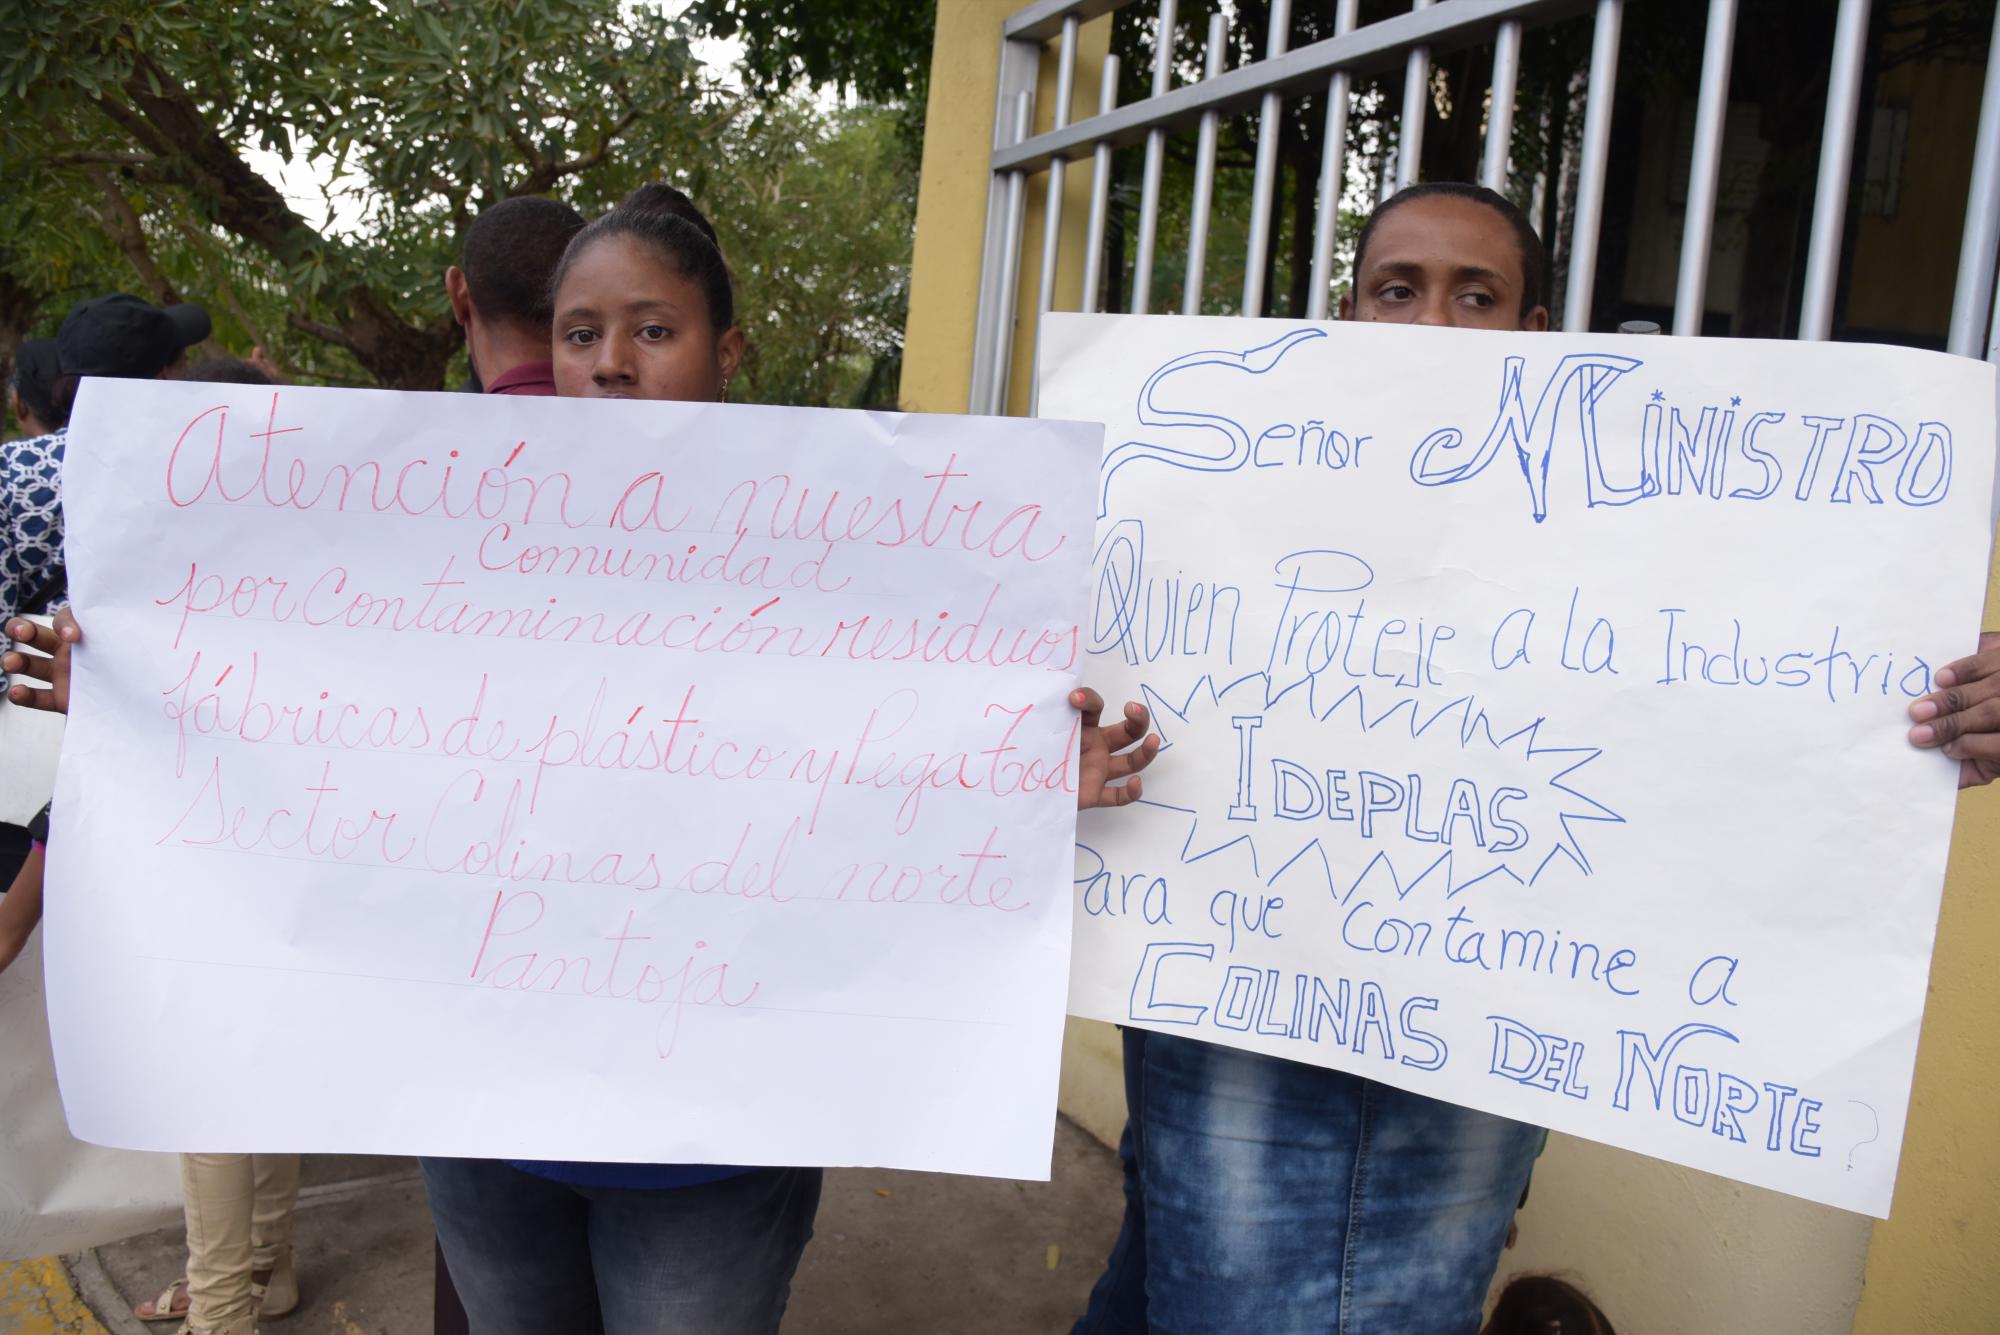 Atención a nuestra
Comunidad
por Contaminación residuos
fábricas de plástico y Pega Tod
Sector Colinas del norte
Pantoja
Señor MINISTRO
Quien Proteje a la Industria
IDEPLAS
Para que contamine a
COLINAS DEL NORTE?